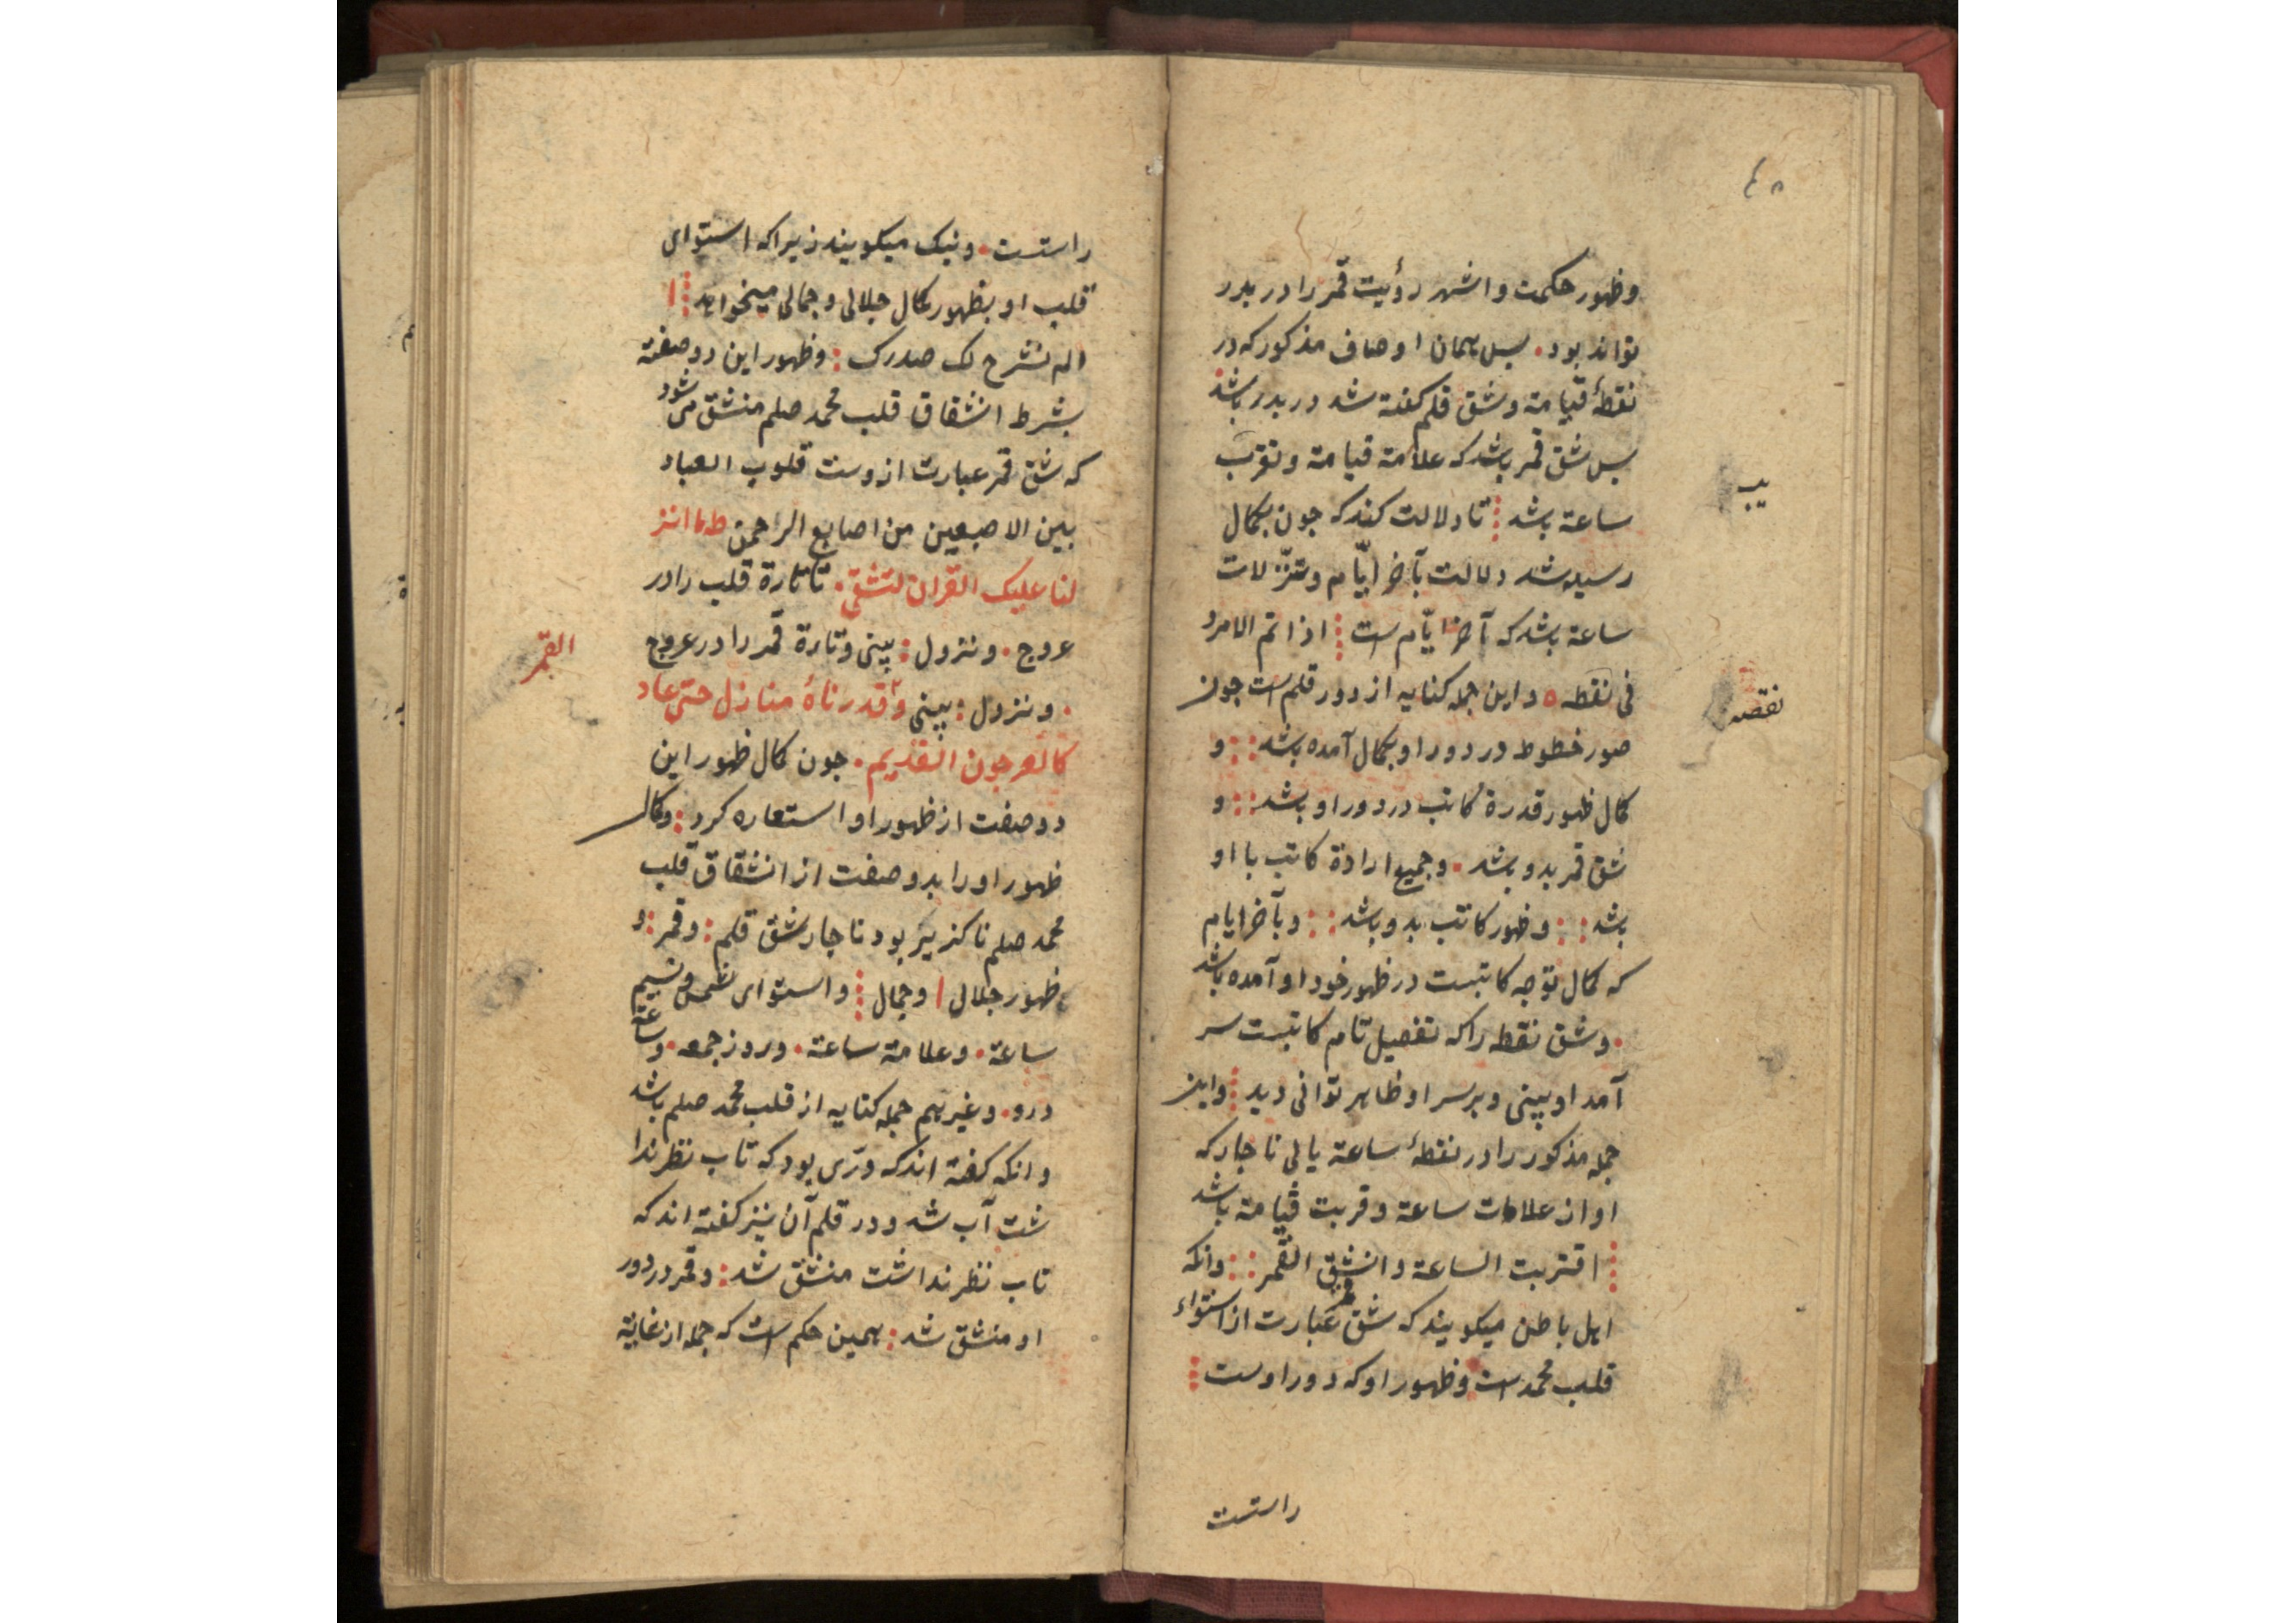 ۴۸
وظهور حکمت واشهر رؤیت قمر را در بدر
تواند بود. پس همان اوصاف مذکور که در
نقطهٔ قیامة وشق قلم کفته شد در بدر باشد
پس شق قمر باشد که علامة قیامة وتقرب
ساعة باشد تا دلالت کند که جون بکمال
رسیده شد دلالت بآخر ایّام وتنزّلات
ساعة باشد که آخر ایّام است اذا تم الامر د
فی نقطه ٥ واین جمله کنایه از دور قلم است جون
صور خطوط در دور او بکمال آمده باشد و
کمال ظهور قدرة کاتب در دور او باشد و
شق قمر بدو باشد. وجمیع ارادة کاتب با او
باشد وظهور کاتب بدو باشد وبآخر ایام
که کمال توجه کاتبست در ظهور خود او آمده باشد
. وشق نقطه را که تفصیل تام کاتبست سر
آمد او بینی وبر سر او ظاهر توانی دید واین
جمله مذکور را در نقطهٔ ساعة یابی ناجار که
او از علامات ساعة وقربت قیامة باشد
اقتربت الساعة وانشق القمر وانکه
اهل باطن میکویند که شق قمر عبارت از استواء
قلب محمد است وظهور او که دور اوست
راستت
یب
نقصه
راستت. ونیک میکویند زیرا که استوای
قلب او بظهور کمال جلالی وجمالی میخواهد ا
الم نشرح لک صدرک : وظهور این دو صفته
بشرط انشقاق قلب محمد صلم منشق می شود
که شق قمر عبارت ازوست قلوب العباد
بین الاصبعین من اصابع الرحمن طه ما انز
لنا علیک القران لتشقی. تا تارة قلب را در
عروج. ونزول : بینی وتارة قمر را در عروج
. ونزول : بینی وقدرناهٔ منازل حتی عاد
القمر
کالعرجون القدیم. جون کمال ظهور این
دو صفت از ظهور او استعاره کرد : وکمال
ظهور او را بدو صفت از انشقاق قلب
محمد صلم ناکزیر بود ناجار شق قلم : وقمر : و
ظهور جلال ا وجمال واستوای شمس ونسیم
ساعة. وعلامة ساعة. وروز جمعه. وساعة
درو. وغیرهم جمله کنایه از قلب محمد صلم باشد
وانکه کفته اند که درّی بود که تاب نظر ندا
شت آب شد ودر قلم آن نیز کفته اند که
تاب نظر نداشت منشق شد : وقمر در دور
او منشق شد : همین حکم است که جمله از غایة